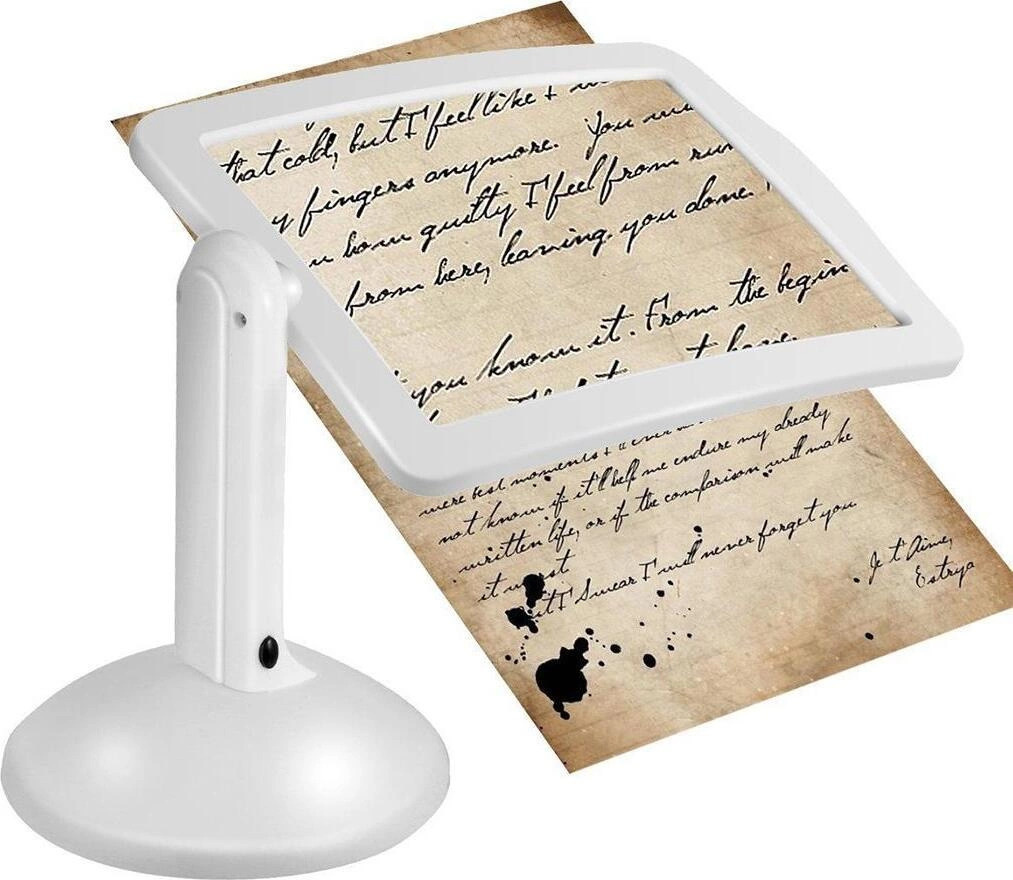 that cold, but I feel like I
y fingers anymore. You mu
u how guilty I feel from run
from here, leaving you done.
you know it. From the begin
t have.
were best moments I
not know if it'll help me endure my already
written life, or if the comparison will make
it
I Swear I will never forget you
Je t'Aime,
Estrya